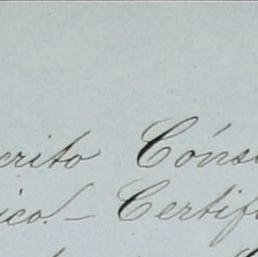 crito Cóns
ico. - Certif